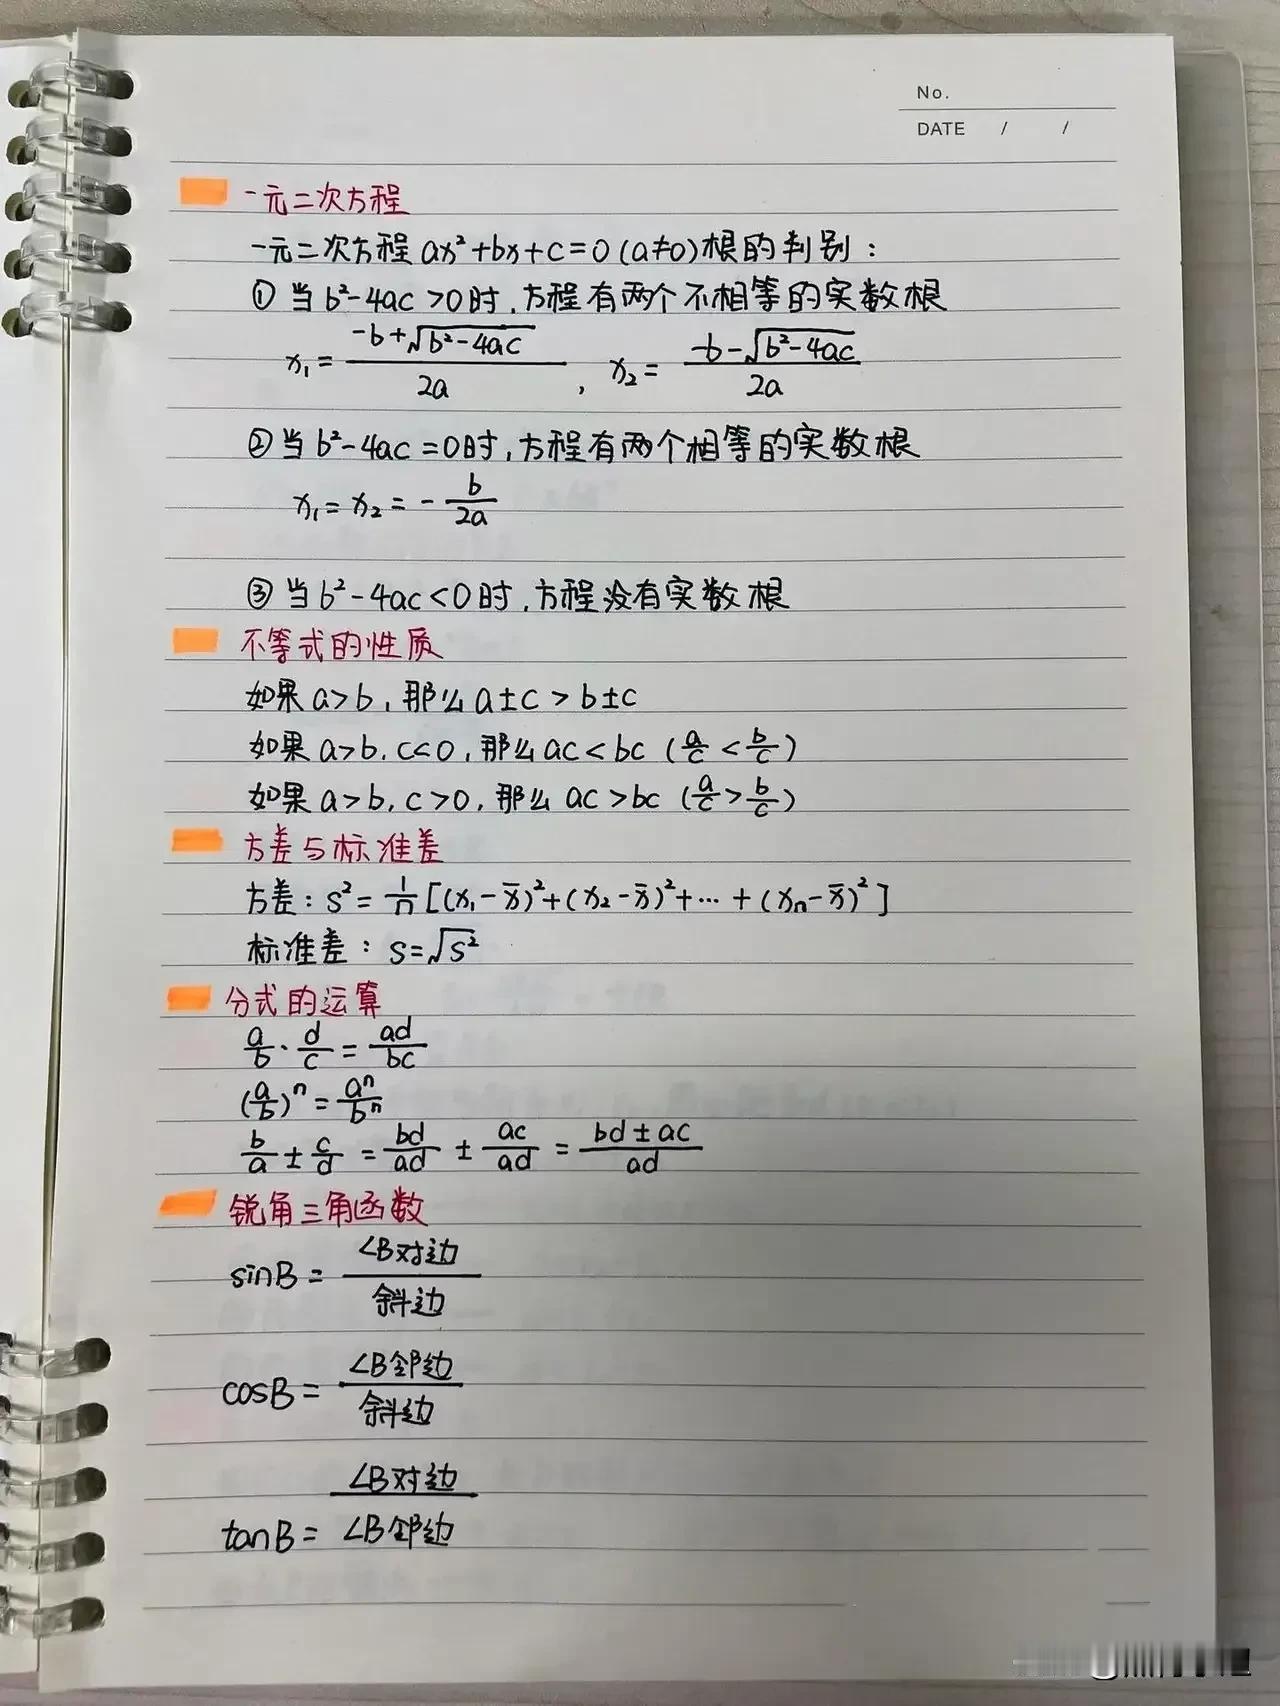 No.
DATE / /
一元二次方程
一元二次方程 ax²+bx+c=0 (a≠0) 根的判别：
① 当 b²-4ac >0时，方程有两个不相等的实数根
x₁ = (-b+√(b²-4ac))/(2a) , x₂ = (-b-√(b²-4ac))/(2a)
② 当 b²-4ac =0时，方程有两个相等的实数根
x₁ = x₂ = - b/(2a)
③ 当 b²-4ac <0时，方程没有实数根
不等式的性质
如果 a>b，那么 a±c > b±c
如果 a>b, c<0，那么 ac<bc (a/c < b/c)
如果 a>b, c>0，那么 ac>bc (a/c > b/c)
方差与标准差
方差：s² = 1/n [(x₁-x̄)²+(x₂-x̄)²+…+(xₙ-x̄)²]
标准差：s=√s²
分式的运算
a/b · d/c = ad/bc
(a/b)ⁿ = aⁿ/bⁿ
b/a ± c/d = bd/ad ± ac/ad = (bd±ac)/ad
锐角三角函数
sinB = ∠B对边/斜边
cosB = ∠B邻边/斜边
tanB = ∠B对边/∠B邻边